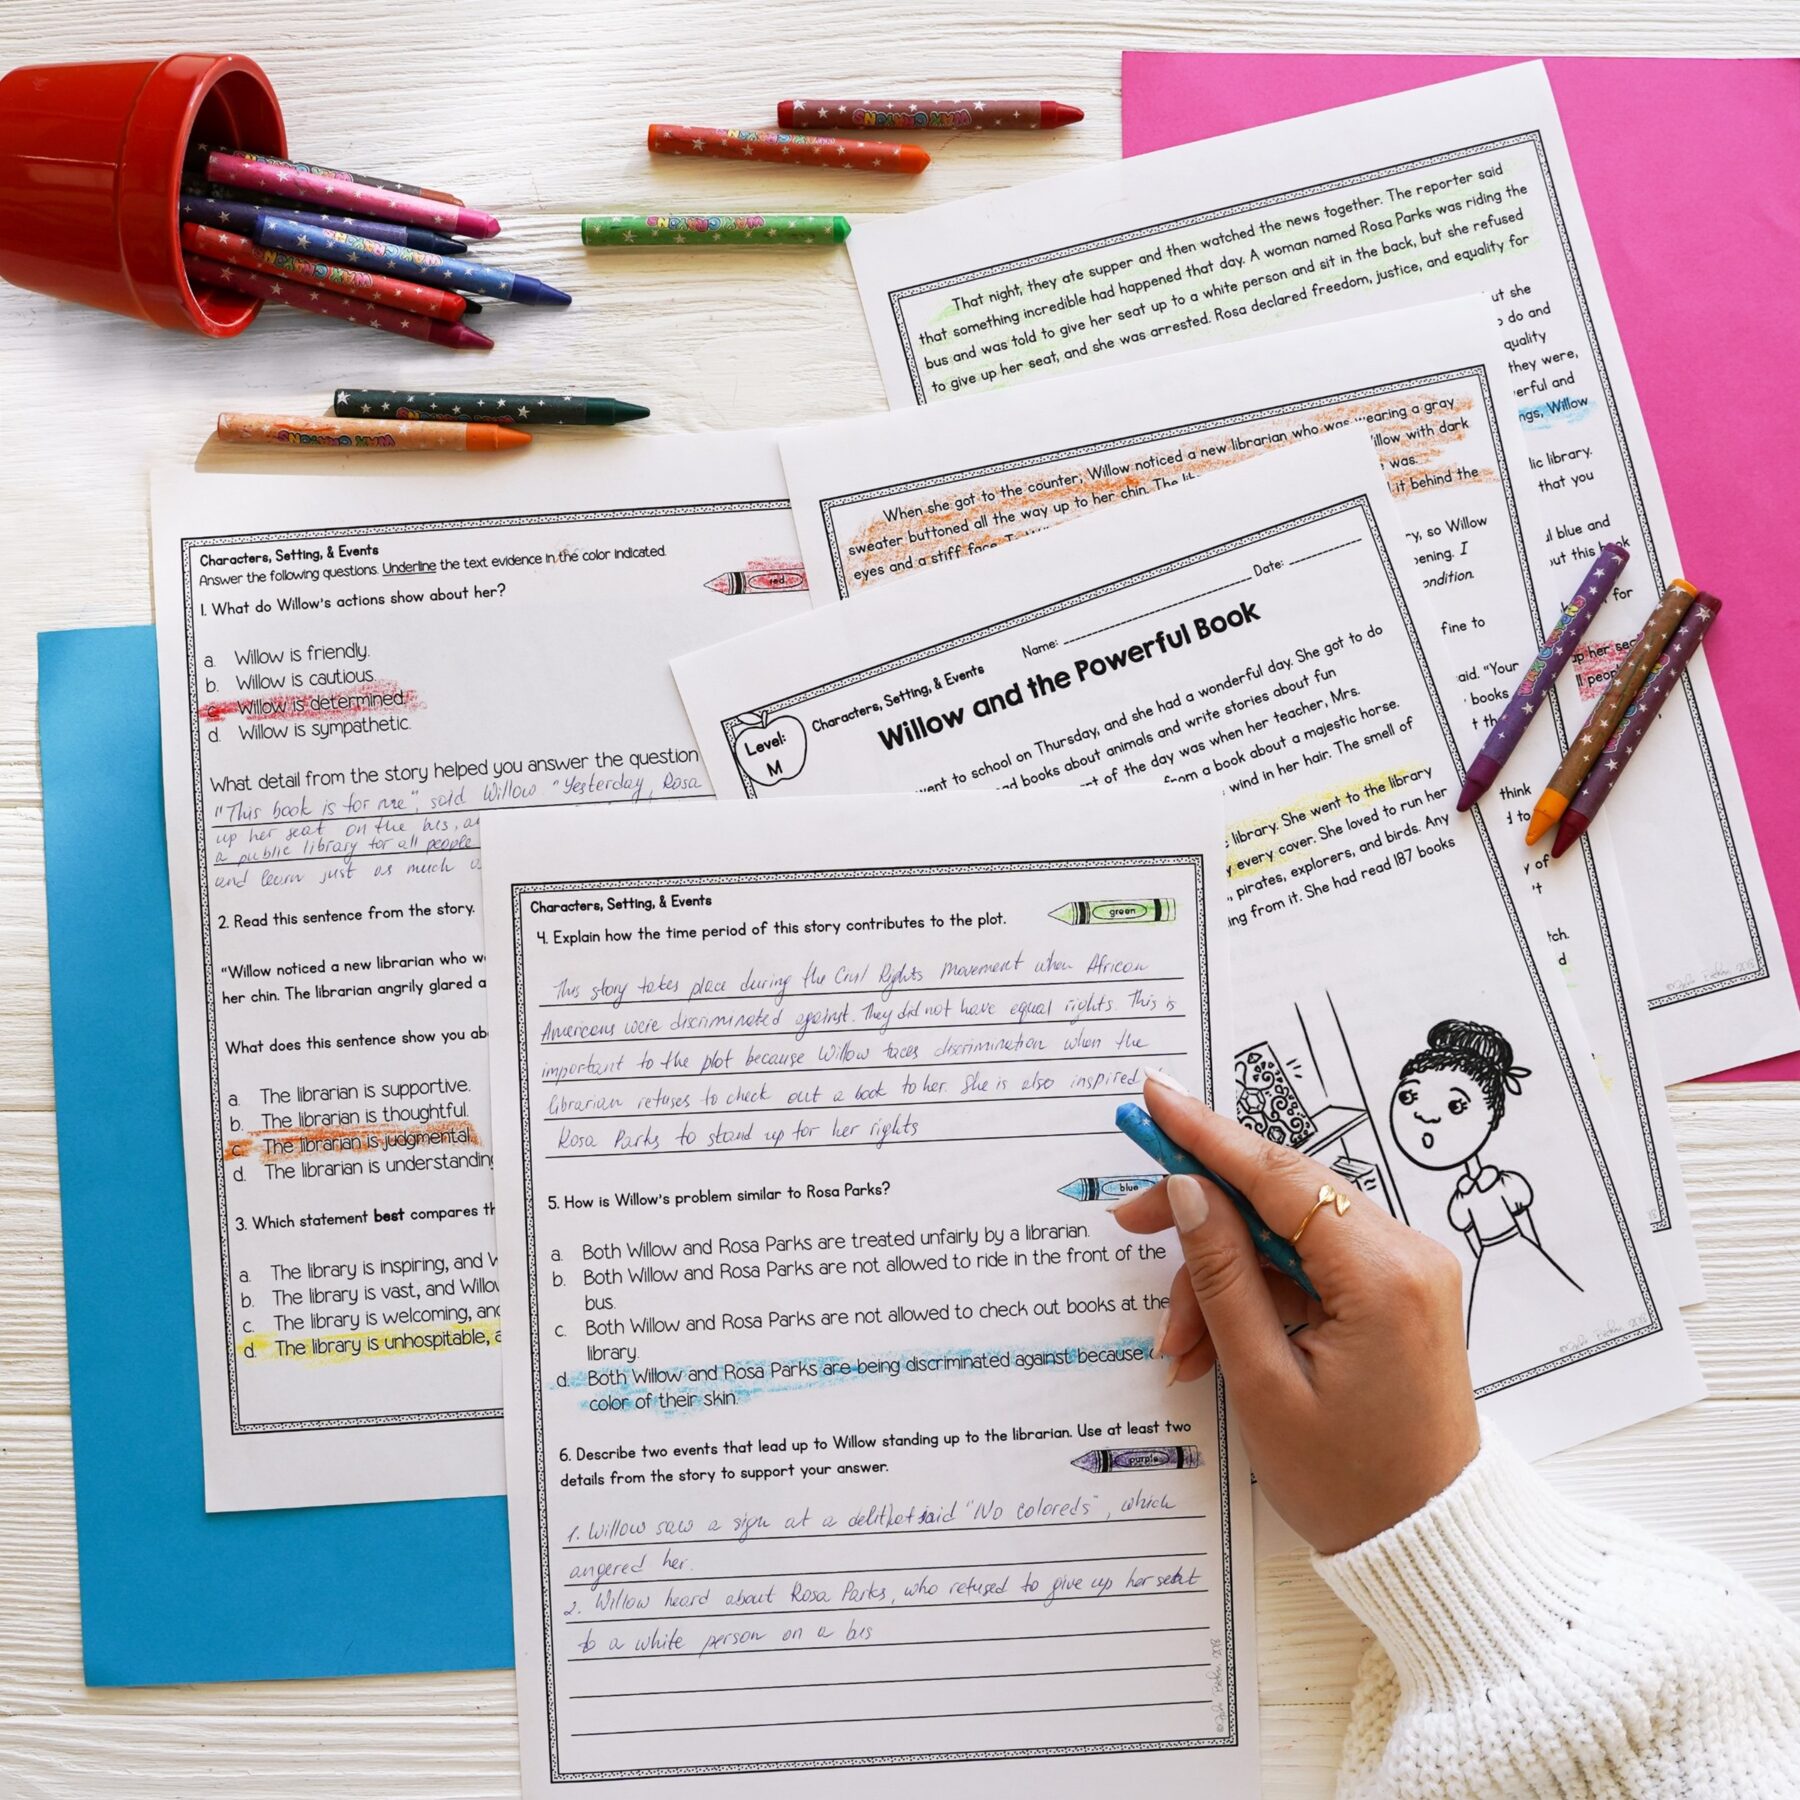 That night, they ate supper and then watched the news together. The reporter said
that something incredible had happened that day. A woman named Rosa Parks was riding the
bus and was told to give her seat up to a white person and sit in the back, but she refused
to give up her seat, and she was arrested. Rosa declared freedom, justice, and equality for
ut she
o do and
quality
they were,
erful and
ngs, Willow
lic library.
that you
ul blue and
out this book
for
up her sea
ll peop
When she got to the counter, Willow noticed a new librarian who was wearing a gray
sweater buttoned all the way up to her chin. The
illow with dark
eyes and a stiff face.
was.
it behind the
ry, so Willow
pening. I
ondition.
fine to
aid. "Your
books
t th
think
d to
y of
't
tch.
d
Level:
M
Characters, Setting, & Events
Name:
Date:
Willow and the Powerful Book
went to school on Thursday, and she had a wonderful day. She got to do
ad books about animals and write stories about fun
rt of the day was when her teacher, Mrs.
from a book about a majestic horse.
wind in her hair. The smell of
library. She went to the library
every cover. She loved to run her
, pirates, explorers, and birds. Any
ing from it. She had read 187 books
Characters, Setting, & Events
Answer the following questions. Underline the text evidence in the color indicated.
red
1. What do Willow's actions show about her?
a. Willow is friendly.
b. Willow is cautious.
c. Willow is determined.
d. Willow is sympathetic.
What detail from the story helped you answer the question
"This book is for me", said Willow "Yesterday, Rosa
up her seat on the bus, a
a public library for all people
and learn just as much
2. Read this sentence from the story.
"Willow noticed a new librarian who w
her chin. The librarian angrily glared a
What does this sentence show you ab
a. The librarian is supportive.
b. The librarian is thoughtful.
c. The librarian is judgmental.
d. The librarian is understanding
3. Which statement best compares th
a. The library is inspiring, and W
b. The library is vast, and Willo
c. The library is welcoming, and
d. The library is unhospitable, a
Characters, Setting, & Events
green
4. Explain how the time period of this story contributes to the plot.
This story takes place during the Civil Rights Movement when African
Americans were discriminated against. They did not have equal rights. This is
important to the plot because Willow faces discrimination when the
librarian refuses to check out a book to her. She is also inspired
Rosa Parks to stand up for her rights
5. How is Willow's problem similar to Rosa Parks?
blue
a. Both Willow and Rosa Parks are treated unfairly by a librarian.
b. Both Willow and Rosa Parks are not allowed to ride in the front of the
bus.
c. Both Willow and Rosa Parks are not allowed to check out books at the
library.
d. Both Willow and Rosa Parks are being discriminated against because
color of their skin.
6. Describe two events that lead up to Willow standing up to the librarian. Use at least two
details from the story to support your answer.
purple
1. Willow saw a sign at a deli that said "No coloreds", which
angered her.
2. Willow heard about Rosa Parks, who refused to give up her seat
to a white person on a bus
WAX CRAYONS
WAX CRAYONS
WAX CRAYONS
WAX CRAYONS
WAX CRAYONS
WAX CRAYONS
WAX CRAYONS